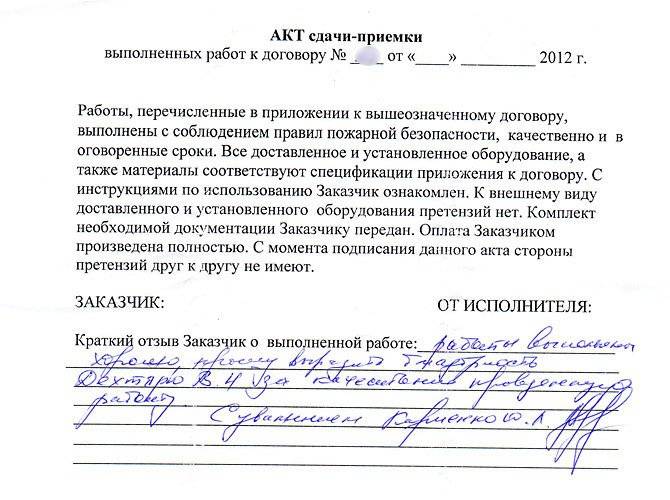 АКТ сдачи-приемки
выполненных работ к договору № ____ от «____» _________ 2012 г.
Работы, перечисленные в приложении к вышеозначенному договору,
выполнены с соблюдением правил пожарной безопасности, качественно и в
оговоренные сроки. Все доставленное и установленное оборудование, а
также материалы соответствуют спецификации приложения к договору. С
инструкциями по использованию Заказчик ознакомлен. К внешнему виду
доставленного и установленного оборудования претензий нет. Комплект
необходимой документации Заказчику передан. Оплата Заказчиком
произведена полностью. С момента подписания данного акта стороны
претензий друг к другу не имеют.
ЗАКАЗЧИК: ОТ ИСПОЛНИТЕЛЯ:
Краткий отзыв Заказчик о выполненной работе: работы выполнены
хорошо, прошу выразить
Дехтярю В. И за проведенную
работу
С уважением